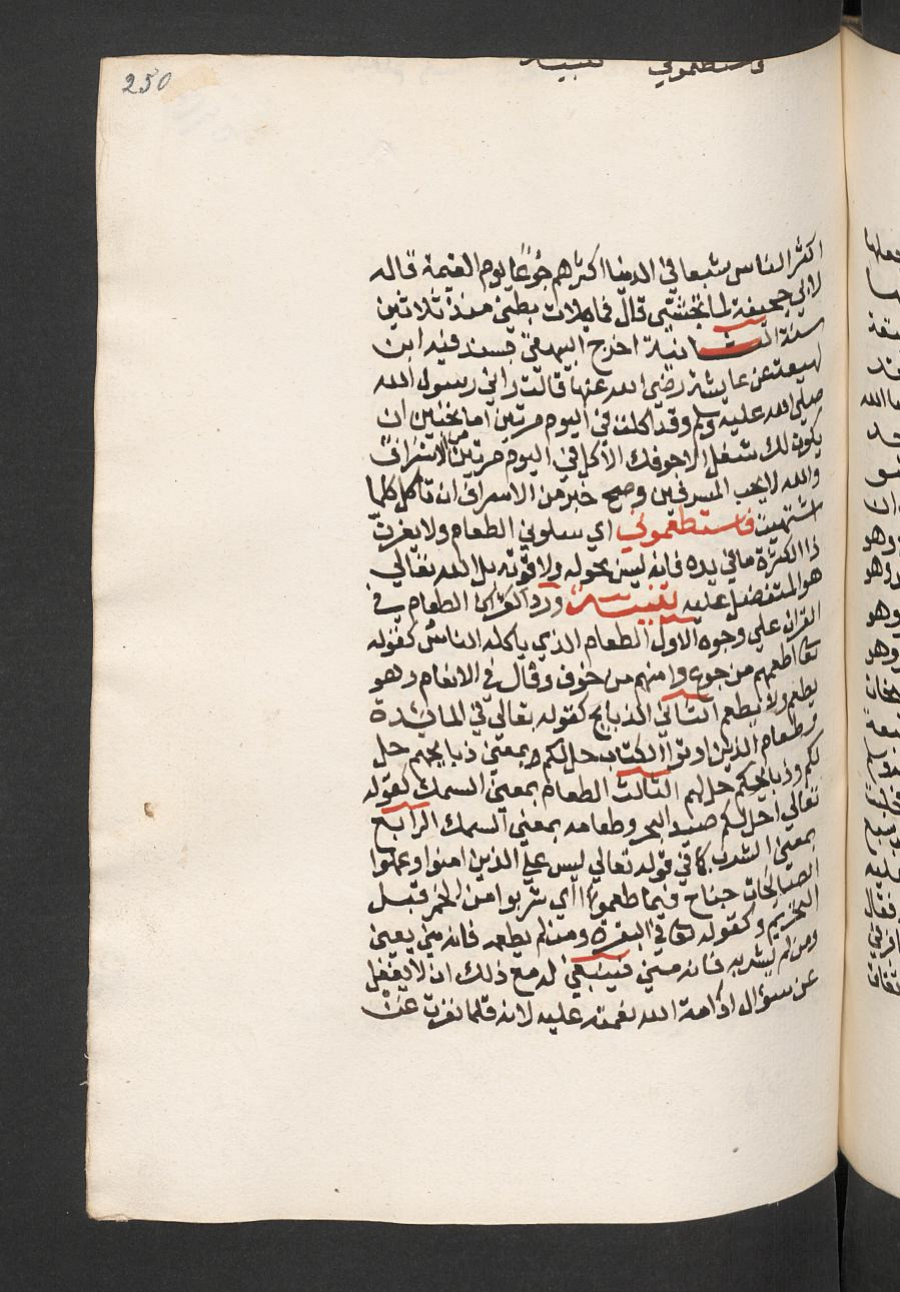 250
فاستطعموني تنبيه
اكثر الناس شبعا في الدنيا اكثرهم جوعا يوم القيمة قاله
لابي جحيفة لما تجشى قال فما ملات بطني منذ ثلاثين
سنة الثانية اخرج البيهقي بسند فيه ابن
لهيعة عن عايشة رضي الله عنها قالت راني رسول الله
صلى الله عليه وسلم وقد اكلت في اليوم مرتين اما تحبين ان
يكون لك شغل الا جوفك الاكل في اليوم مرتين من الاسراف
والله لا يحب المسرفين وصح خبر من الاسراف ان تاكل كلما
اشتهيت فاستطعموني اي سلوني الطعام ولا يغرن
ذا الكثرة ما في يده فانه ليس بحوله ولا قوته بل الله تعالي
هو المتفضل عليه تنبيه ورد الطعام في
القران علي وجوه الاول الطعام الذي ياكله الناس كقوله
تعا اطعمهم من جوع وامنهم من خوف وقال في الانعام وهو
يطعم ولا يطعم الثاني الذبايح كقوله تعالي في المائدة
وطعام الذين اوتوا الكتاب حل لكم بمعني ذبايحهم حل
لكم وذبايحكم حل لهم الثالث الطعام بمعني السمك كقوله
تعالي احل لكم صيد البحر وطعامه بمعني السمك الرابع
بمعني الشرب كما في قوله تعالي ليس علي الذين امنوا وعملوا
الصالحات جناح فيما طعموا اي شربوا من الخمر قبل
التحريم وكقوله تعا في البقرة ومن لم يطعمه فانه مني يعني
ومن لم يشربه فانه مني فينبغي له مع ذلك ان لا يغفل
عن سؤال ادامة الله نعمته عليه لانه قلما نفرت عن